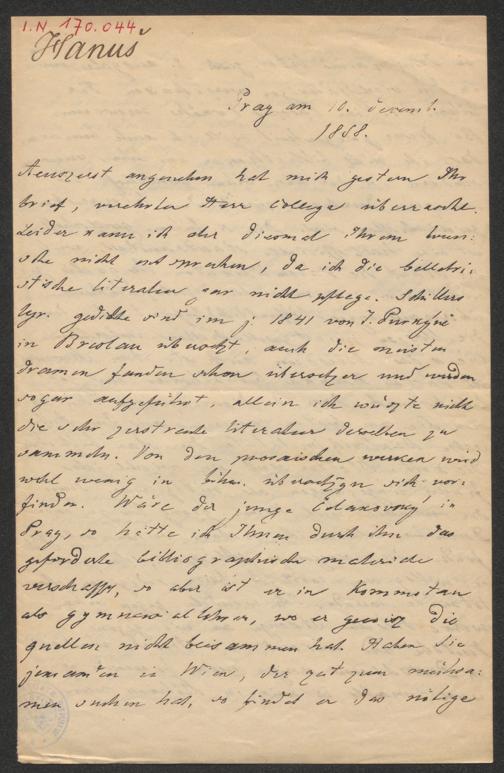 I.N. 170.044
Hanuš
Prag am 10. Decemb.
1858.
Aeuszerst angenehm hat mich gestern Ihr
brief, verehrter Herr College überrascht.
Leider kann ich aber diesmal Ihrem wun-
sche nicht entsprechen, da ich die belletri-
stische literatur gar nicht pflege. Schillers
lyr. gedichte sind im j. 1841 von J. Purkyně
in Breslau übersetzt, auch die meisten
dramen fanden schon übersetzer und wurden
sogar aufgeführt, allein ich wüszte nicht
die sehr zerstreute literatur derselben zu
sammeln. Von den prosaischen werken wird
wohl wenig in böhm. übersetzgn sich vor-
finden. Wäre der junge Čelakovský in
Prag, so hätte ich Ihnen durch ihn das
geforderte bibliographische materiale
verschafft, so aber ist er in Kommotau
als gymnasiallehrer, wo er gewisz die
quellen nicht beisammen hat. Haben Sie
jemanden in Wien, der zeit zum mühsa-
men suchen hat, so findet er das nötige